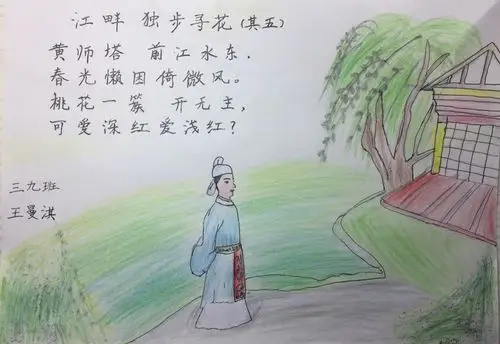 江畔 独步寻花(其五)
黄师塔 前江水东.
春光懒困倚微风。
桃花一簇 开无主,
可爱深红爱浅红?
三九班
王曼淇